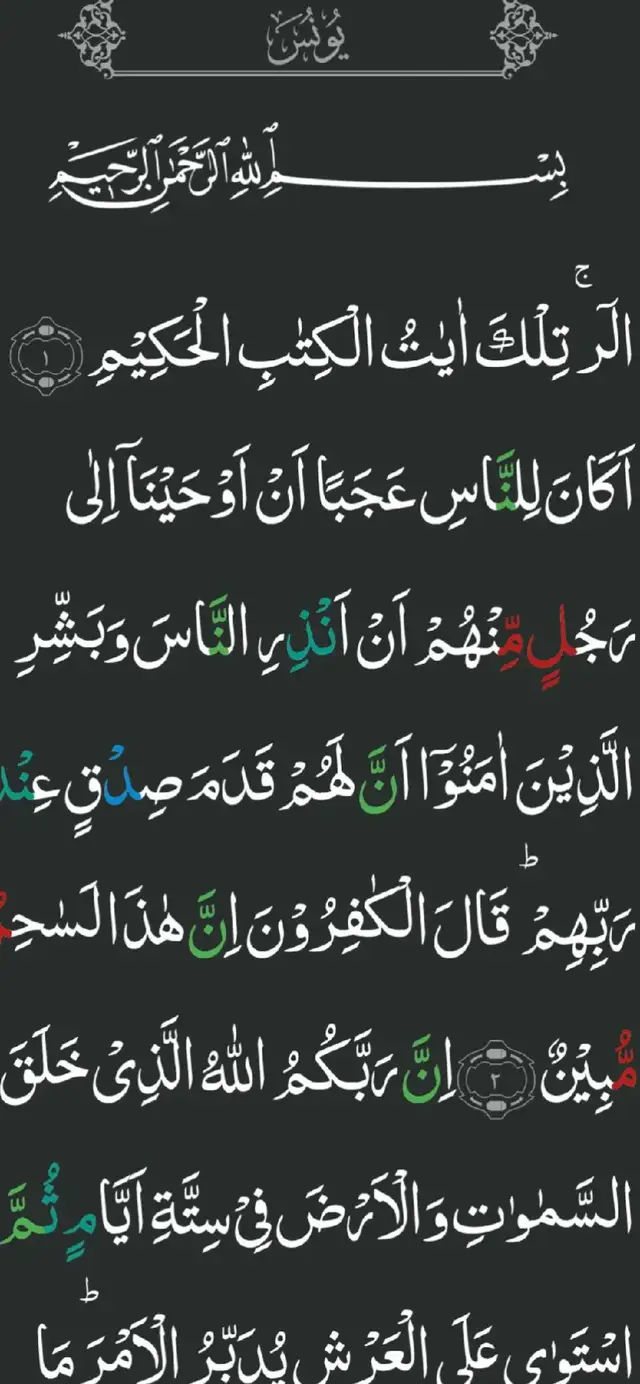 يُونُس
بِسْمِ اللهِ الرَّحْمٰنِ الرَّحِيْمِ
الٓرٰ ۚ تِلْكَ اٰيٰتُ الْكِتٰبِ الْحَكِيْمِ ۝١
اَكَانَ لِلنَّاسِ عَجَبًا اَنْ اَوْحَيْنَاۤ اِلٰى
رَجُلٍ مِّنْهُمْ اَنْ اَنْذِرِ النَّاسَ وَبَشِّرِ
الَّذِيْنَ اٰمَنُوْۤا اَنَّ لَهُمْ قَدَمَ صِدْقٍ عِنْد
رَبِّهِمْ ؕ قَالَ الْكٰفِرُوْنَ اِنَّ هٰذَا لَسٰحِرٌ
مُّبِيْنٌ ۝٢ اِنَّ رَبَّكُمُ اللهُ الَّذِىْ خَلَقَ
السَّمٰوٰتِ وَالْاَرْضَ فِىْ سِتَّةِ اَيَّامٍ ثُمَّ
اسْتَوٰى عَلَى الْعَرْشِ يُدَبِّرُ الْاَمْرَ ؕ مَا